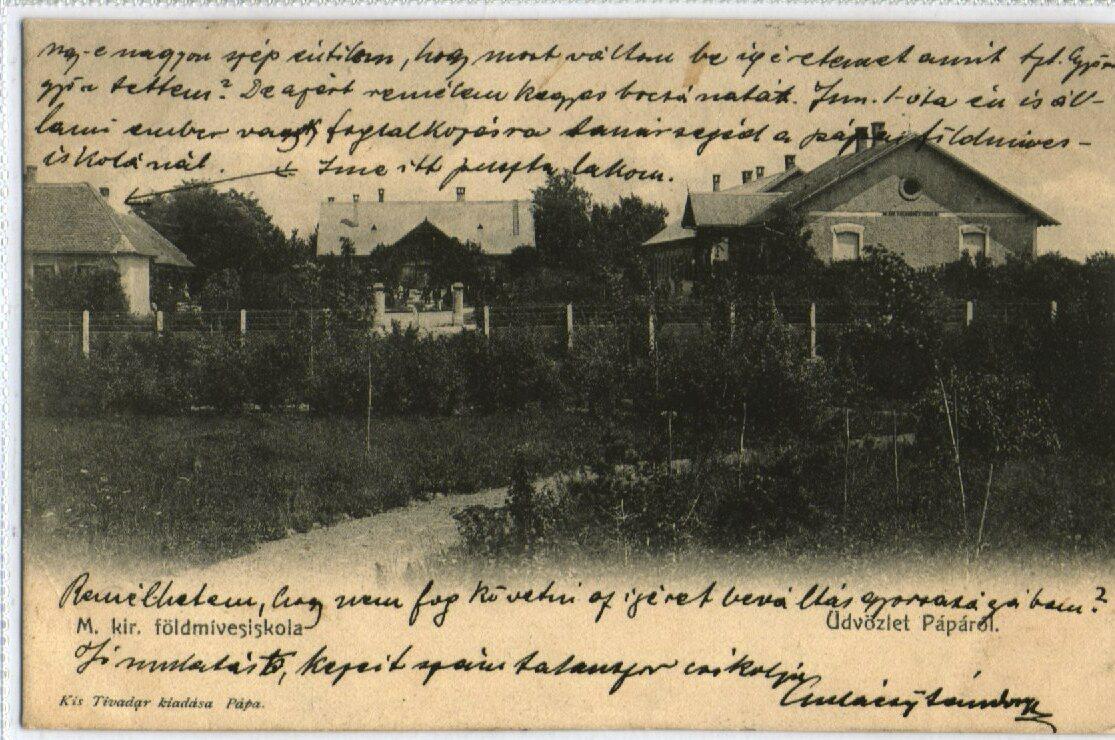 nagyon szép tőlem, hogy most váltom be igéretemet amit
tettem? De azért remélem kegyes bocsánatát. Jun. 1-óta én is ál-
lami ember vagyok foglalkozásra tanársegéd a pápai földmíves-
iskolánál. Ime itt puszta lakom.
Remélhetem, hogy nem fog követni az igéret beváltás gyorsaságában?
M. kir. földmivesiskola
Üdvözlet Pápáról.
Jó mulatást, kezeit számtalanszor csókolja
Kis Tivadar kiadása Pápa.
Sándor